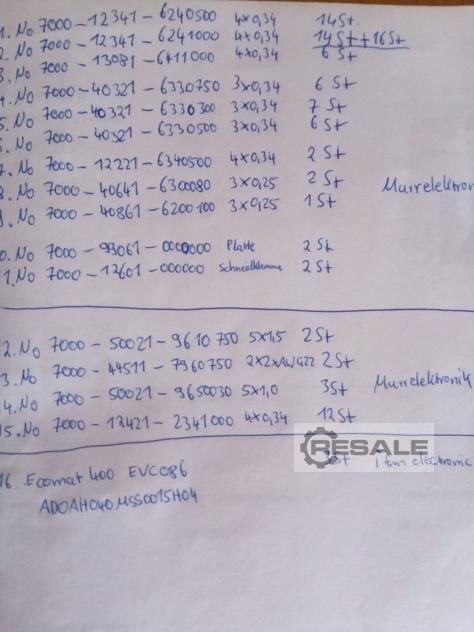 1. No 7000-12341-6240500 4x0,34 14St.
2. No 7000-12341-6241000 4x0,34 14St+16St
3. No 7000-13081-6411000 4x0,34 6St
4. No 7000-40321-6330750 3x0,34 6 St
5. No 7000-40321-6330300 3x0,34 7 St
6. No 7000-40321-6330500 3x0,34 6 St
7. No 7000-12221-6340500 4x0,34 2 St
8. No 7000-40641-6300080 3x0,25 2 St Murrelektronik
9. No 7000-40861-6200100 3x0,25 1 St
0. No 7000-99061-0000000 Platte 2 St
11. No 7000-12601-000000 Schneidklemme 2 St
2. No 7000-50021-9610750 5x1,5 2St
3. No 7000-44511-7960750 2x2xAWG22 2St
4. No 7000-50021-9650030 5x1,0 3St Murrelektronik
15. No 7000-12421-2341000 4x0,34 12St
RESALE
16. Ecomat 400 EVC086 3St ifm electronic
ADOAH040MSS0015H04